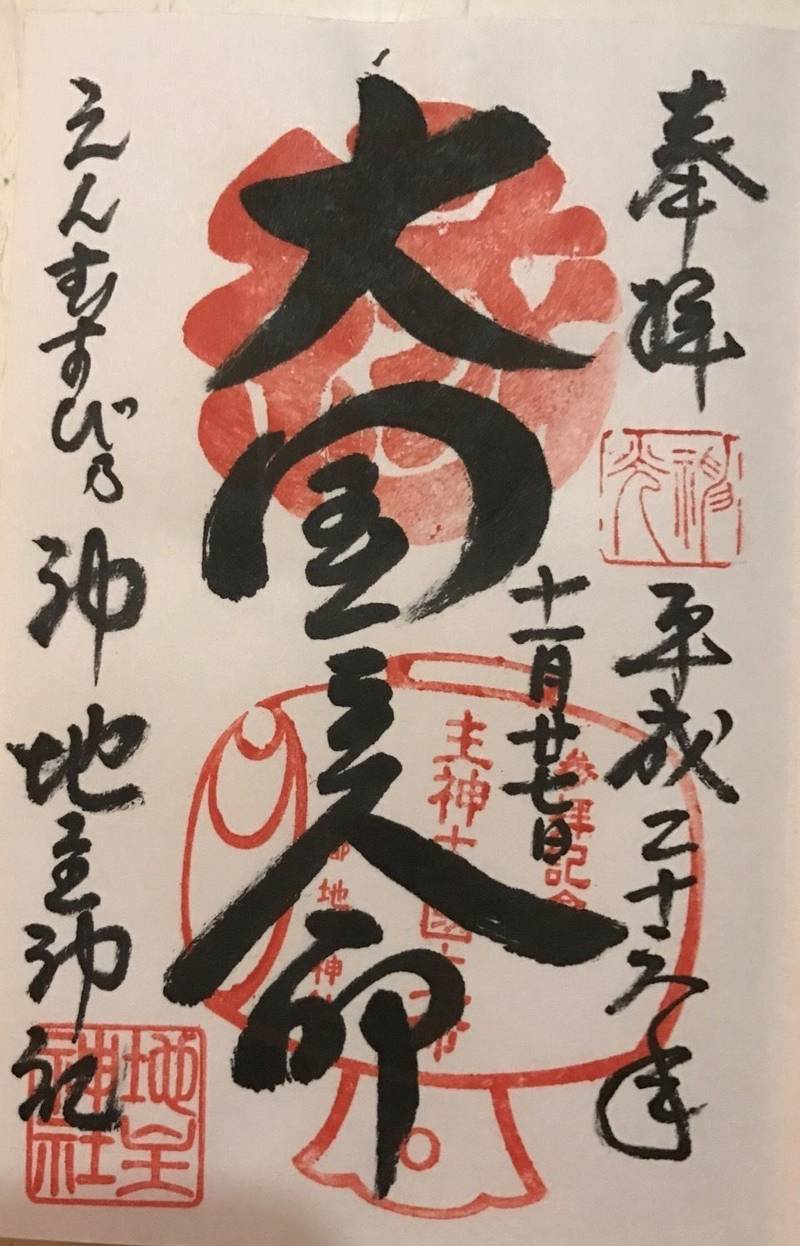 奉拝
平成二十六年
十一月廿七日
大国主命
えんむすび乃神 地主神社
参拝記念
主神大國主命
地主神社